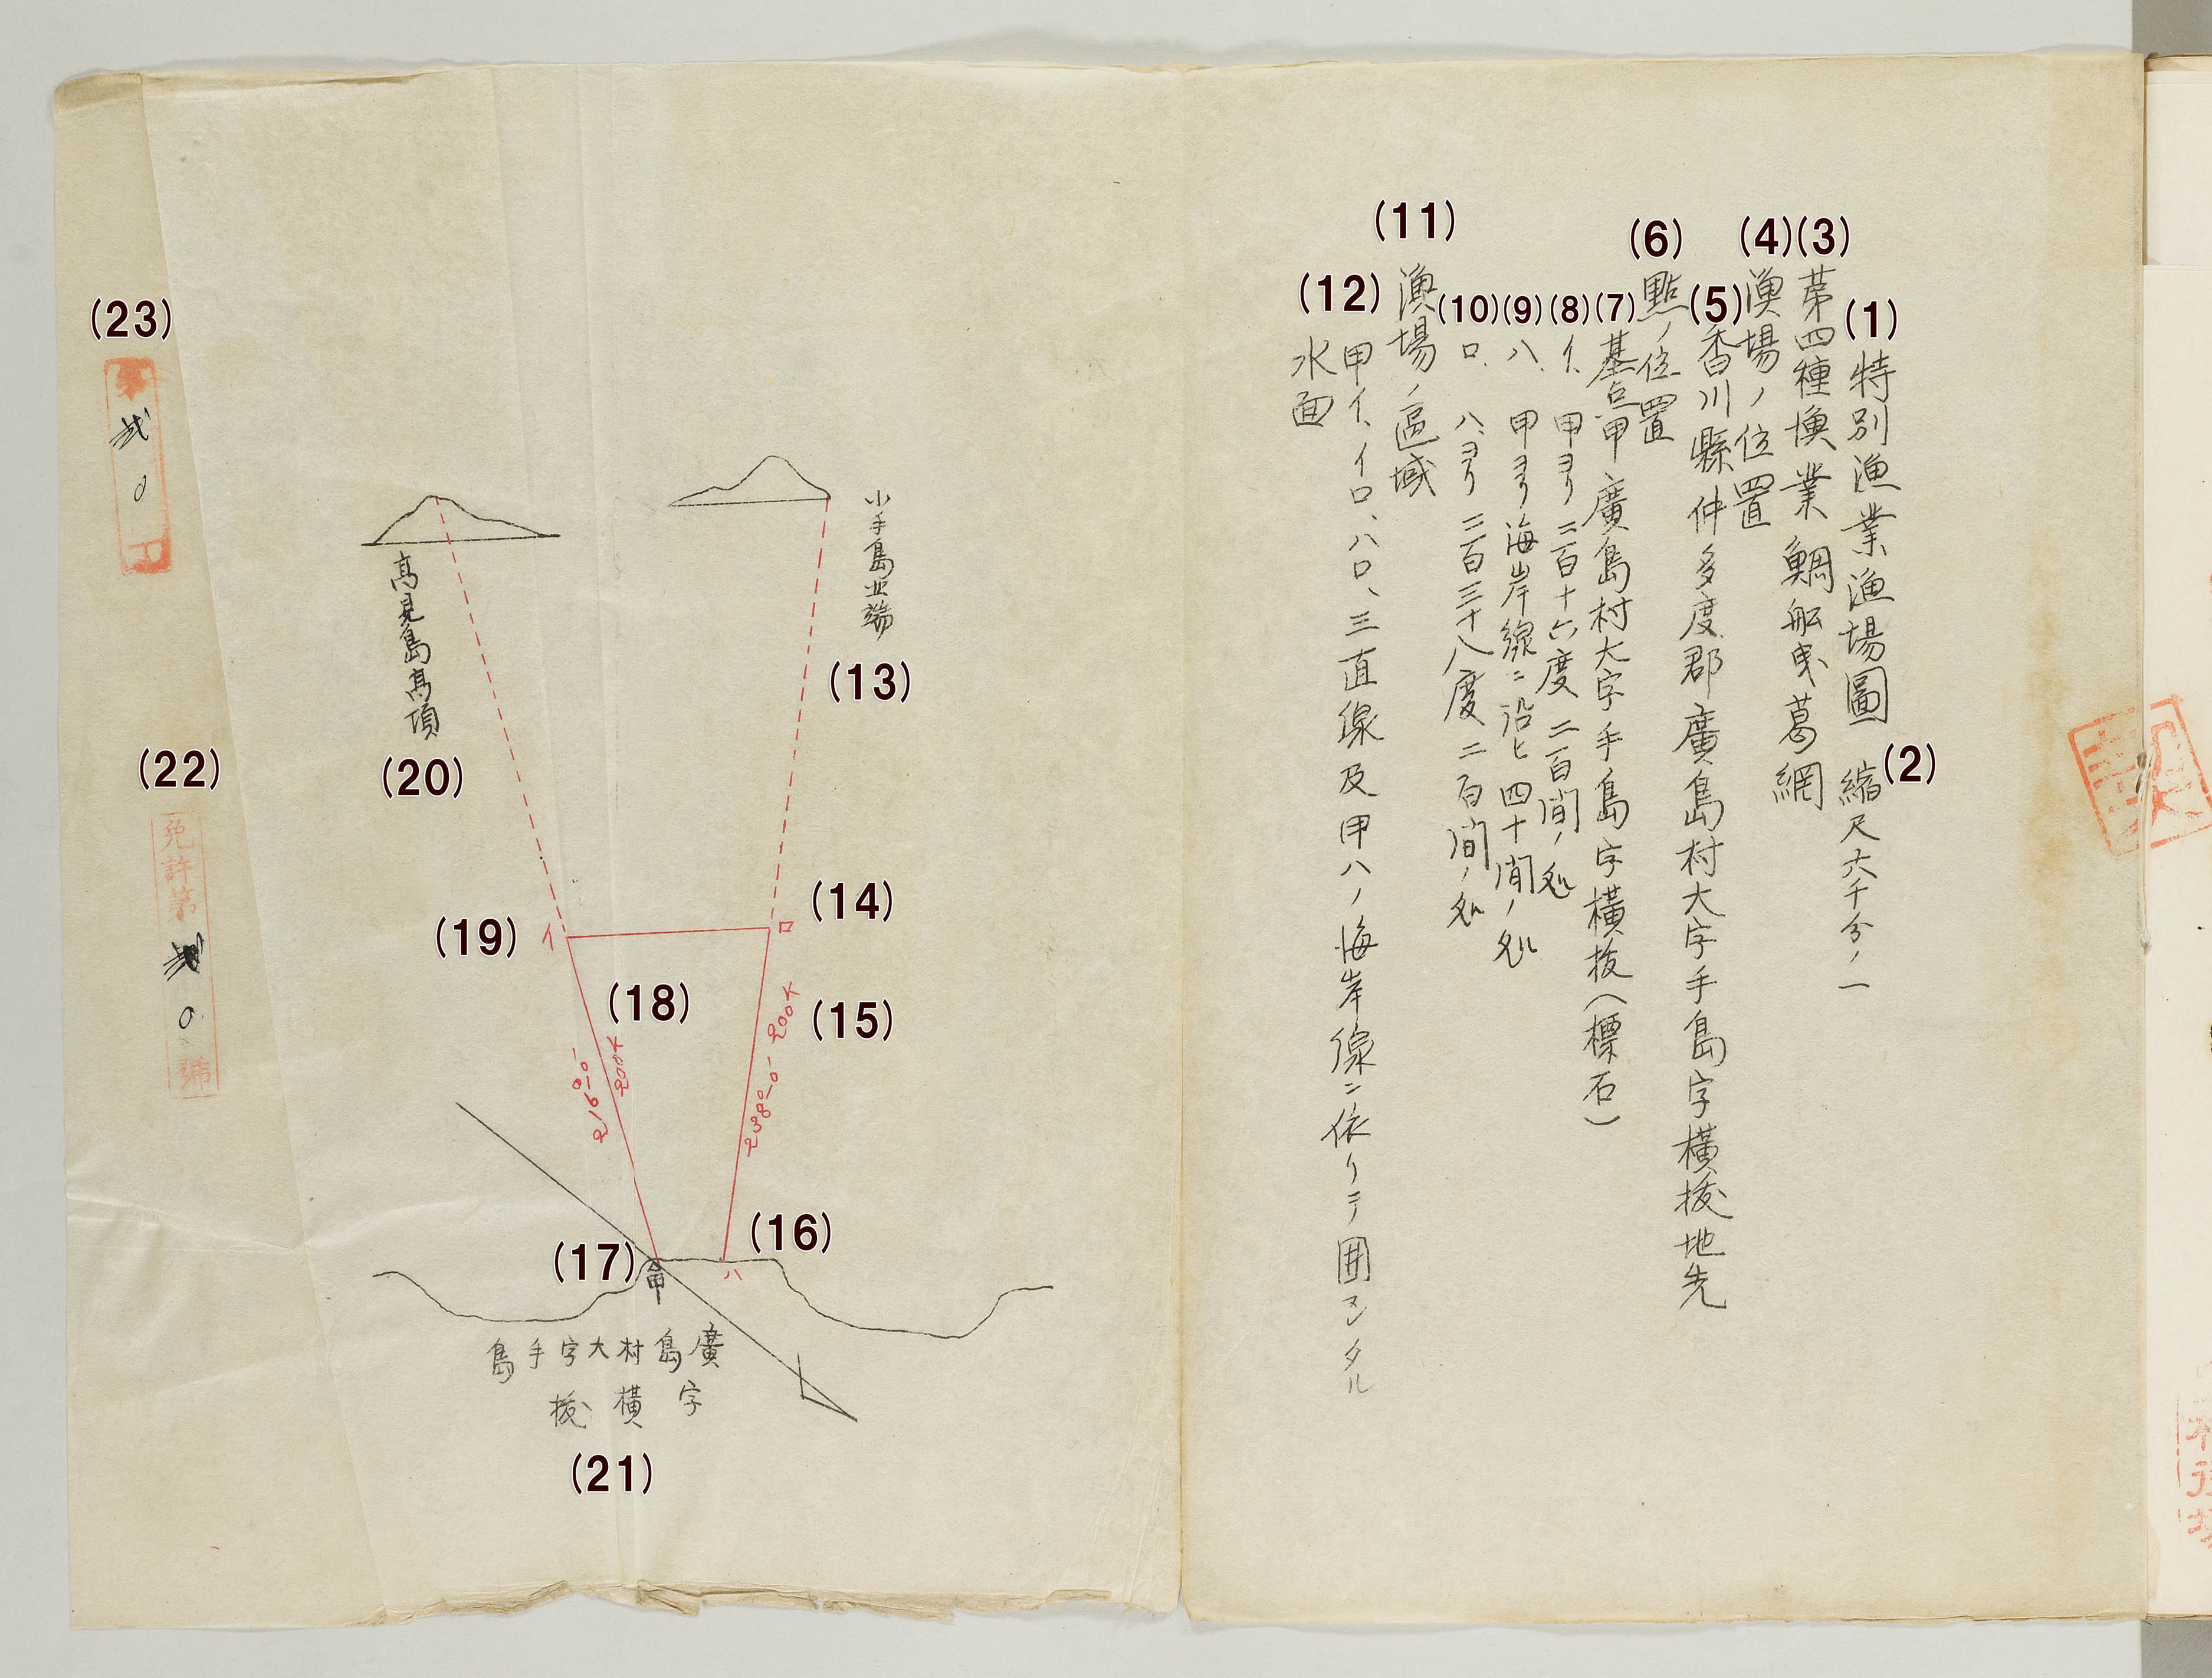 (1) 特別漁業漁場圖
(2) 縮尺六千分ノ一
(3) 第四種漁業 鯛船曳葛網
(4) 漁場ノ位置
(5) 香川縣仲多度郡廣島村大字手島字横抜地先
(6) 點ノ位置
(7) 基点甲 廣島村大字手島字横抜(標石)
(8) イ、甲ヨリ二百十六度二百間ノ処
(9) ハ、甲ヨリ海岸線ニ沿ヒ四十間ノ処
(10) ロ、ハ、ヨリ二百三十八度二百間ノ処
(11) 漁場ノ區域
(12) 甲イ、イロ、ハロ、三直線及甲ハノ海岸線ニ依リテ囲マレタル
水面
(13) 小手島北端
(14) ロ
(15) 238°-0' 200K
(16) ハ
(17) 甲
(18) 216°-0' 200K
(19) イ
(20) 高見島高頂
(21) 廣島村大字手島
字横抜
(22) 免許第 号 號
(23)